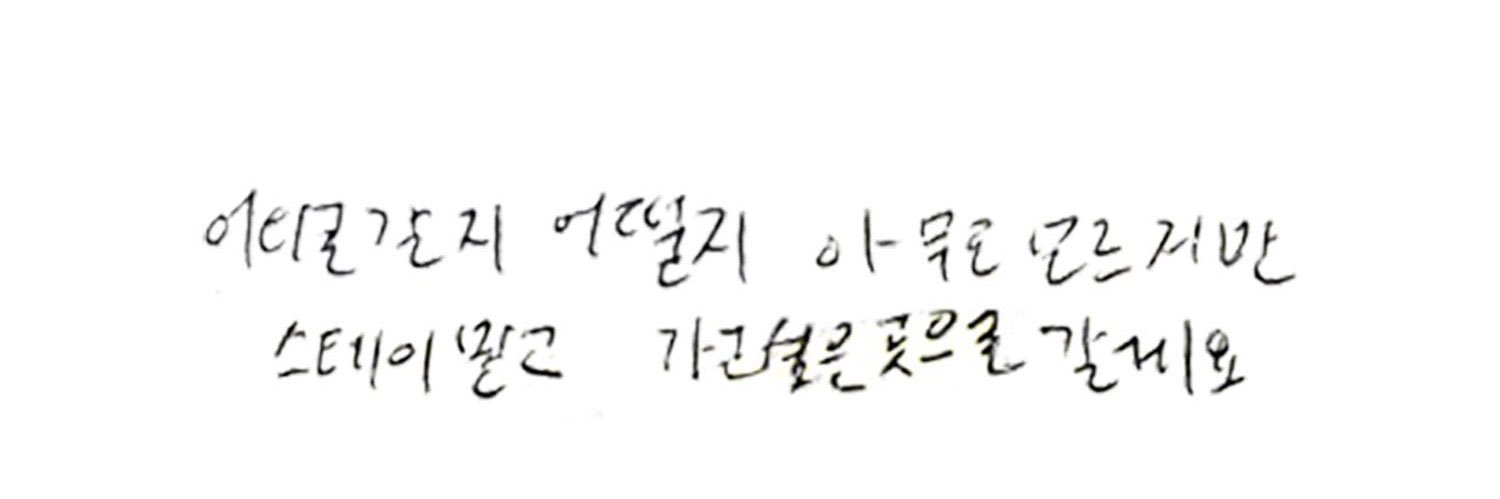 어디로 갈지 어떨지 아무도 모르지만
스테이 말고 가고싶은 곳으로 갈게요